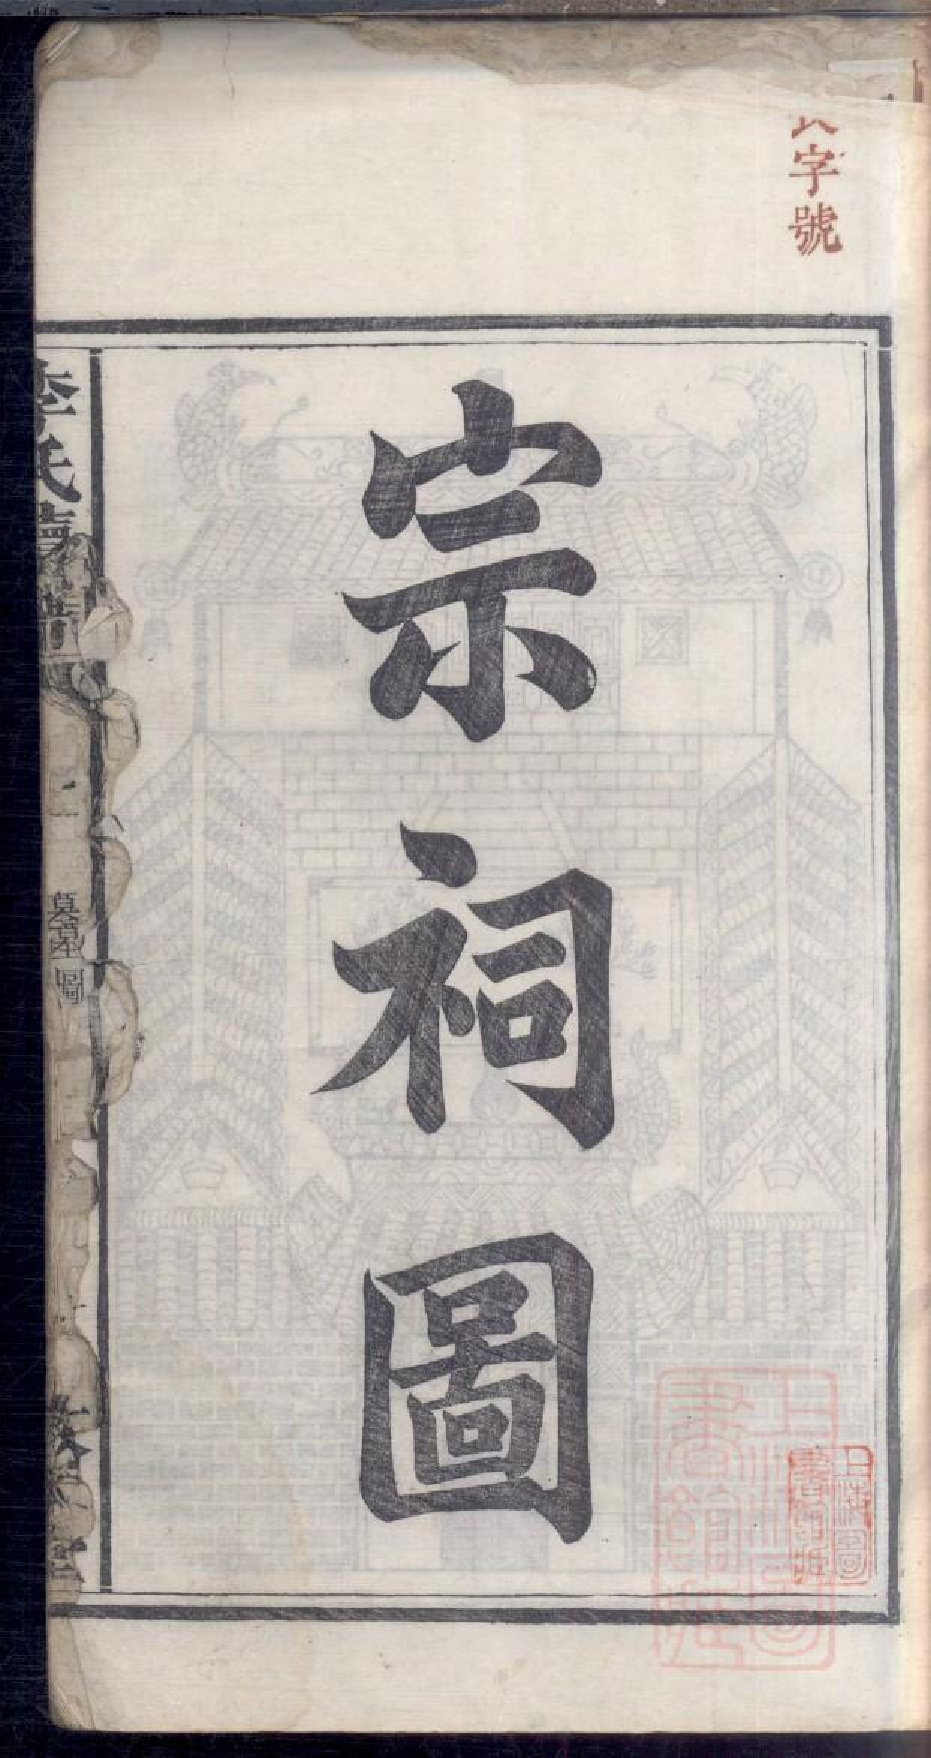 字號
宗祠圖
上海圖
書館藏
上海圖
書館藏
李氏續譜
墓塋圖